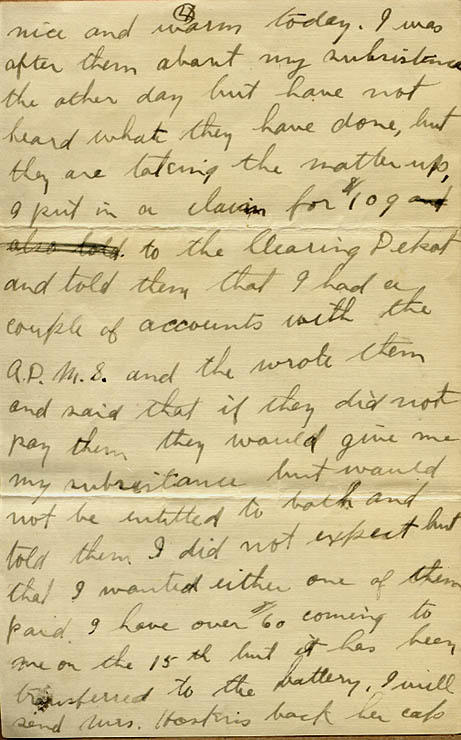 4
nice and warm today. I was
after them about my subsistence
the other day but have not
heard what they have done, but
they are taking the matter up,
I put in a claim for $109 and
also told to the Clearing Depot
and told them that I had a
couple of accounts with the
A.P.M.S. and the wrote them
and said that if they did not
pay them they would give me
my subsistance but would
not be entitled to both and
told them I did not expect but
that I wanted either one of them
paid. I have over $60 coming to
me on the 15th but it has been
transferred to the battery, I will
send Mrs. Hoskins back her caps